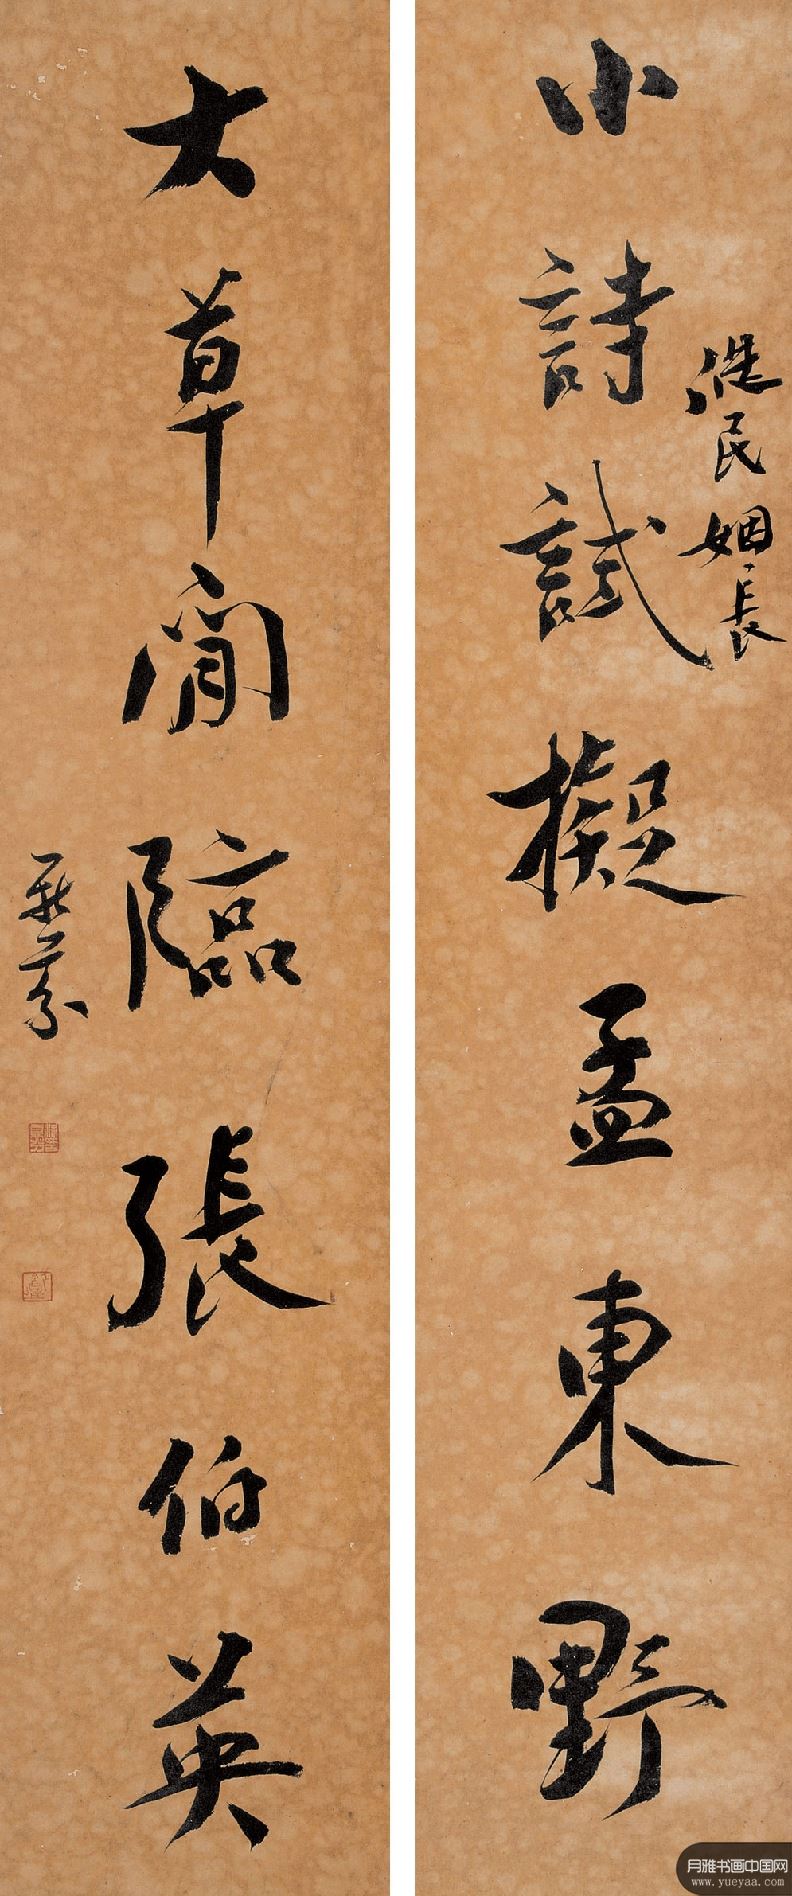 小詩試擬孟東野
民姻長
大草閒臨張伯英
月雅书画中国网
www.yueyaa.com